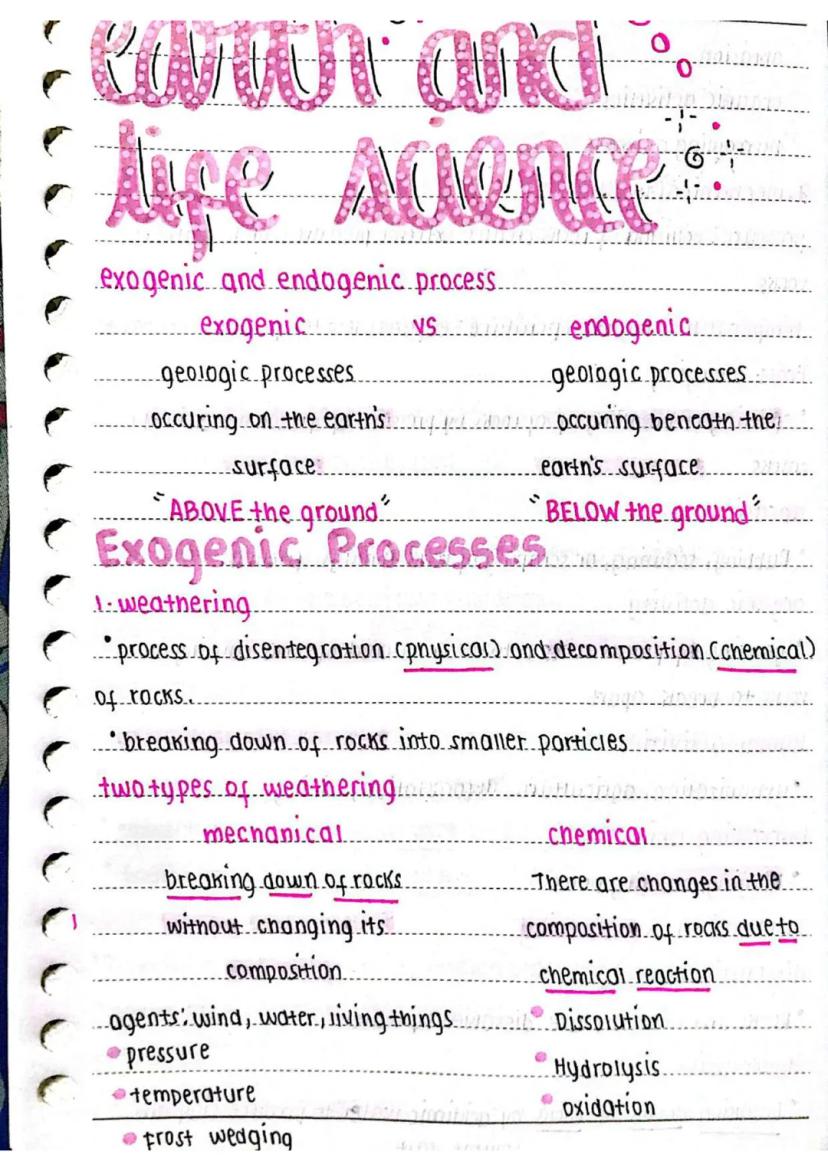 earth and
life science
exogenic and endogenic process
exogenic vs endogenic
geologic processes geologic processes
occuring on the earth's occuring beneath the
surface earth's surface
"ABOVE the ground" "BELOW the ground"
Exogenic Processes
1. weathering
•process of disentegration (physical) and decomposition (chemical)
of rocks.
•breaking down of rocks into smaller particles
two types of weathering
mechanical chemical
breaking down of rocks There are changes in the
without changing its composition of rocks due to
composition chemical reaction
agents: wind, water, living things • Dissolution
• pressure • Hydrolysis
• temperature • oxidation
• frost wedging